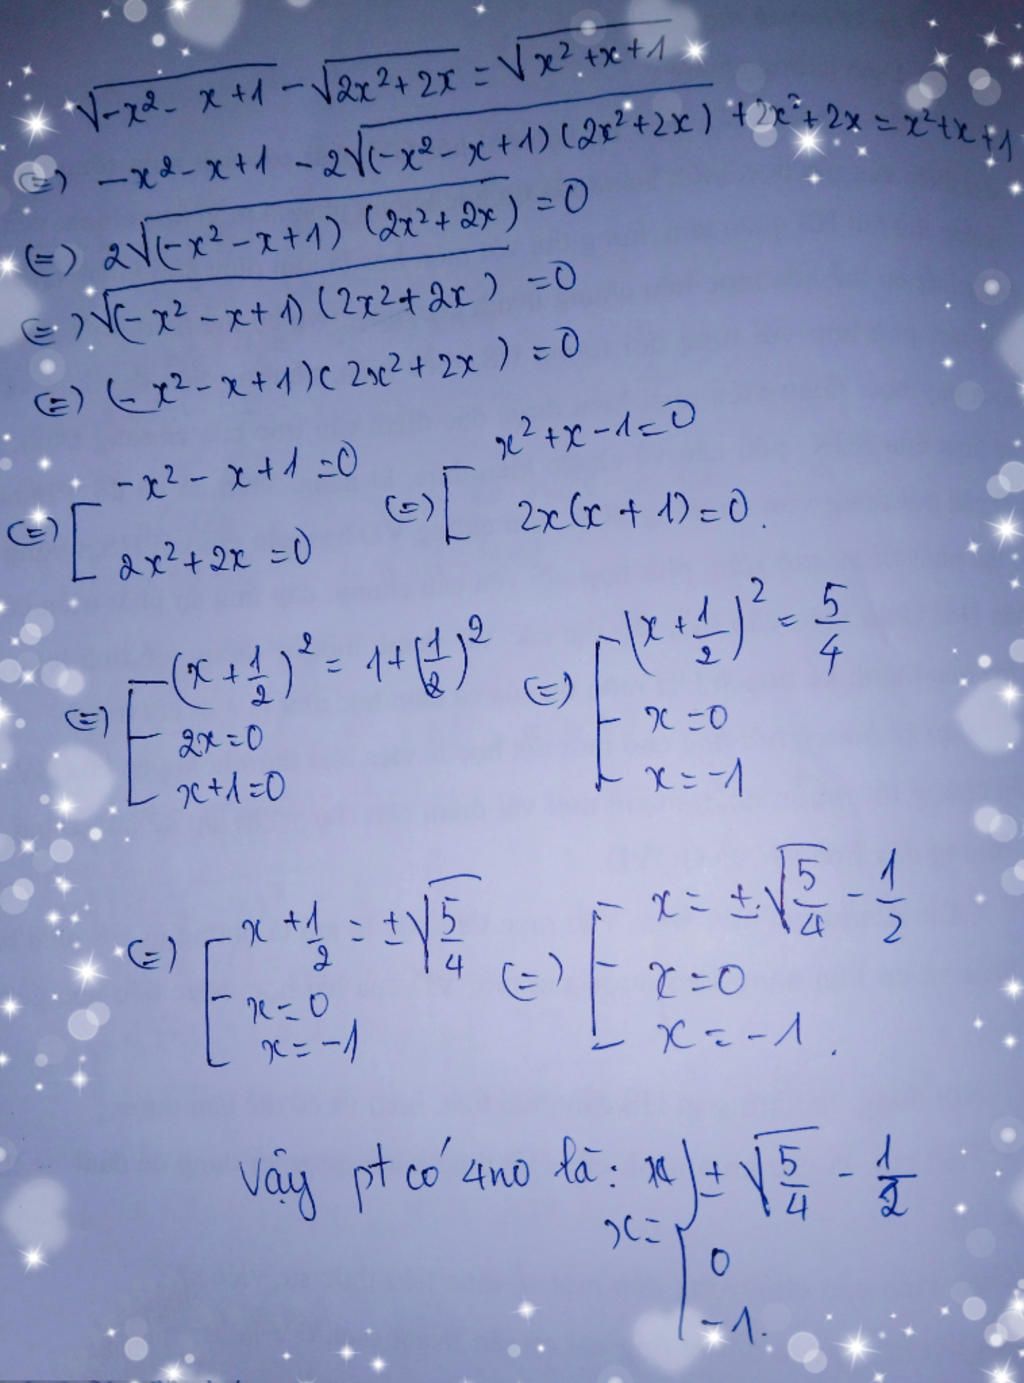 √(-x² - x + 1) - √(2x² + 2x) = √(x² + x + 1)
(=) -x² - x + 1 - 2√((-x² - x + 1)(2x² + 2x)) + 2x² + 2x = x² + x + 1
(=) 2√((-x² - x + 1)(2x² + 2x)) = 0
(=) √((-x² - x + 1)(2x² + 2x)) = 0
(=) (-x² - x + 1)(2x² + 2x) = 0
(=) [ -x² - x + 1 = 0
2x² + 2x = 0
(=) [ x² + x - 1 = 0
2x(x + 1) = 0.
(=) [ (x + 1/2)² = 1 + (1/2)²
2x = 0
x + 1 = 0
(=) [ (x + 1/2)² = 5/4
x = 0
x = -1
(=) [ x + 1/2 = ±√(5/4)
x = 0
x = -1
(=) [ x = ±√(5/4) - 1/2
x = 0
x = -1.
Vậy pt có 4 no là: x = { ±√(5/4) - 1/2
0
-1.